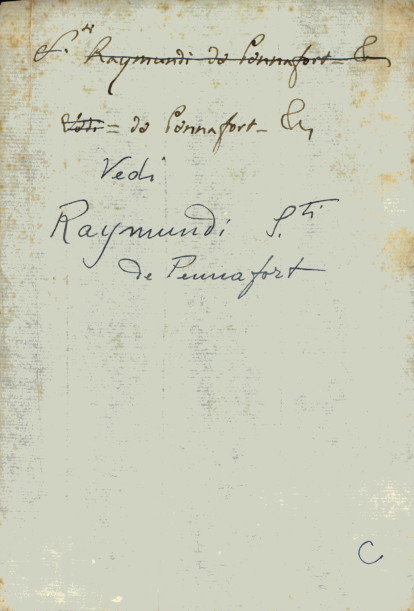 S.ti Raymundi de Pennafort -
Vedi = de Pennafort -
Vedi
Raymundi S.ti
de Pennafort
C